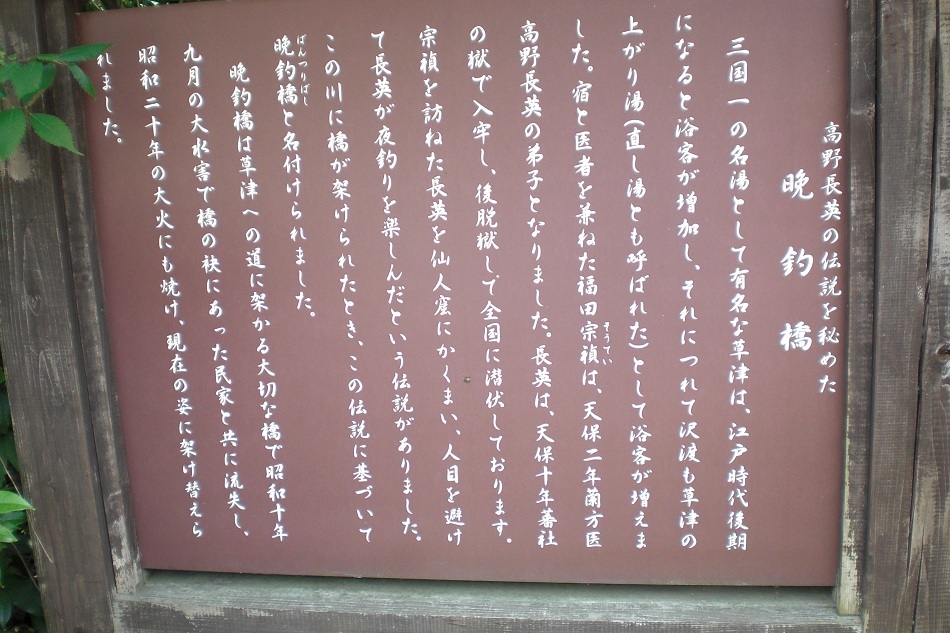 高野長英の伝説を秘めた
晩釣橋
三国一の名湯として有名な草津は、江戸時代後期
になると浴客が増加し、それにつれて沢渡も草津の
上がり湯(直し湯とも呼ばれた)として浴客が増えま
した。宿と医者を兼ねた福田宗禎は、天保二年蘭方医
そうてい
高野長英の弟子となりました。長英は、天保十年蕃社
の獄で入牢し、後脱獄して全国に潜伏しております。
宗禎を訪ねた長英を仙人窟にかくまい、人目を避け
て長英が夜釣りを楽しんだという伝説がありました。
この川に橋が架けられたとき、この伝説に基づいて
晩釣橋と名付けられました。
ばんつりばし
晩釣橋は草津への道に架かる大切な橋で昭和十年
九月の大水害で橋の袂にあった民家と共に流失し、
昭和二十年の大火にも焼け、現在の姿に架け替えら
れました。